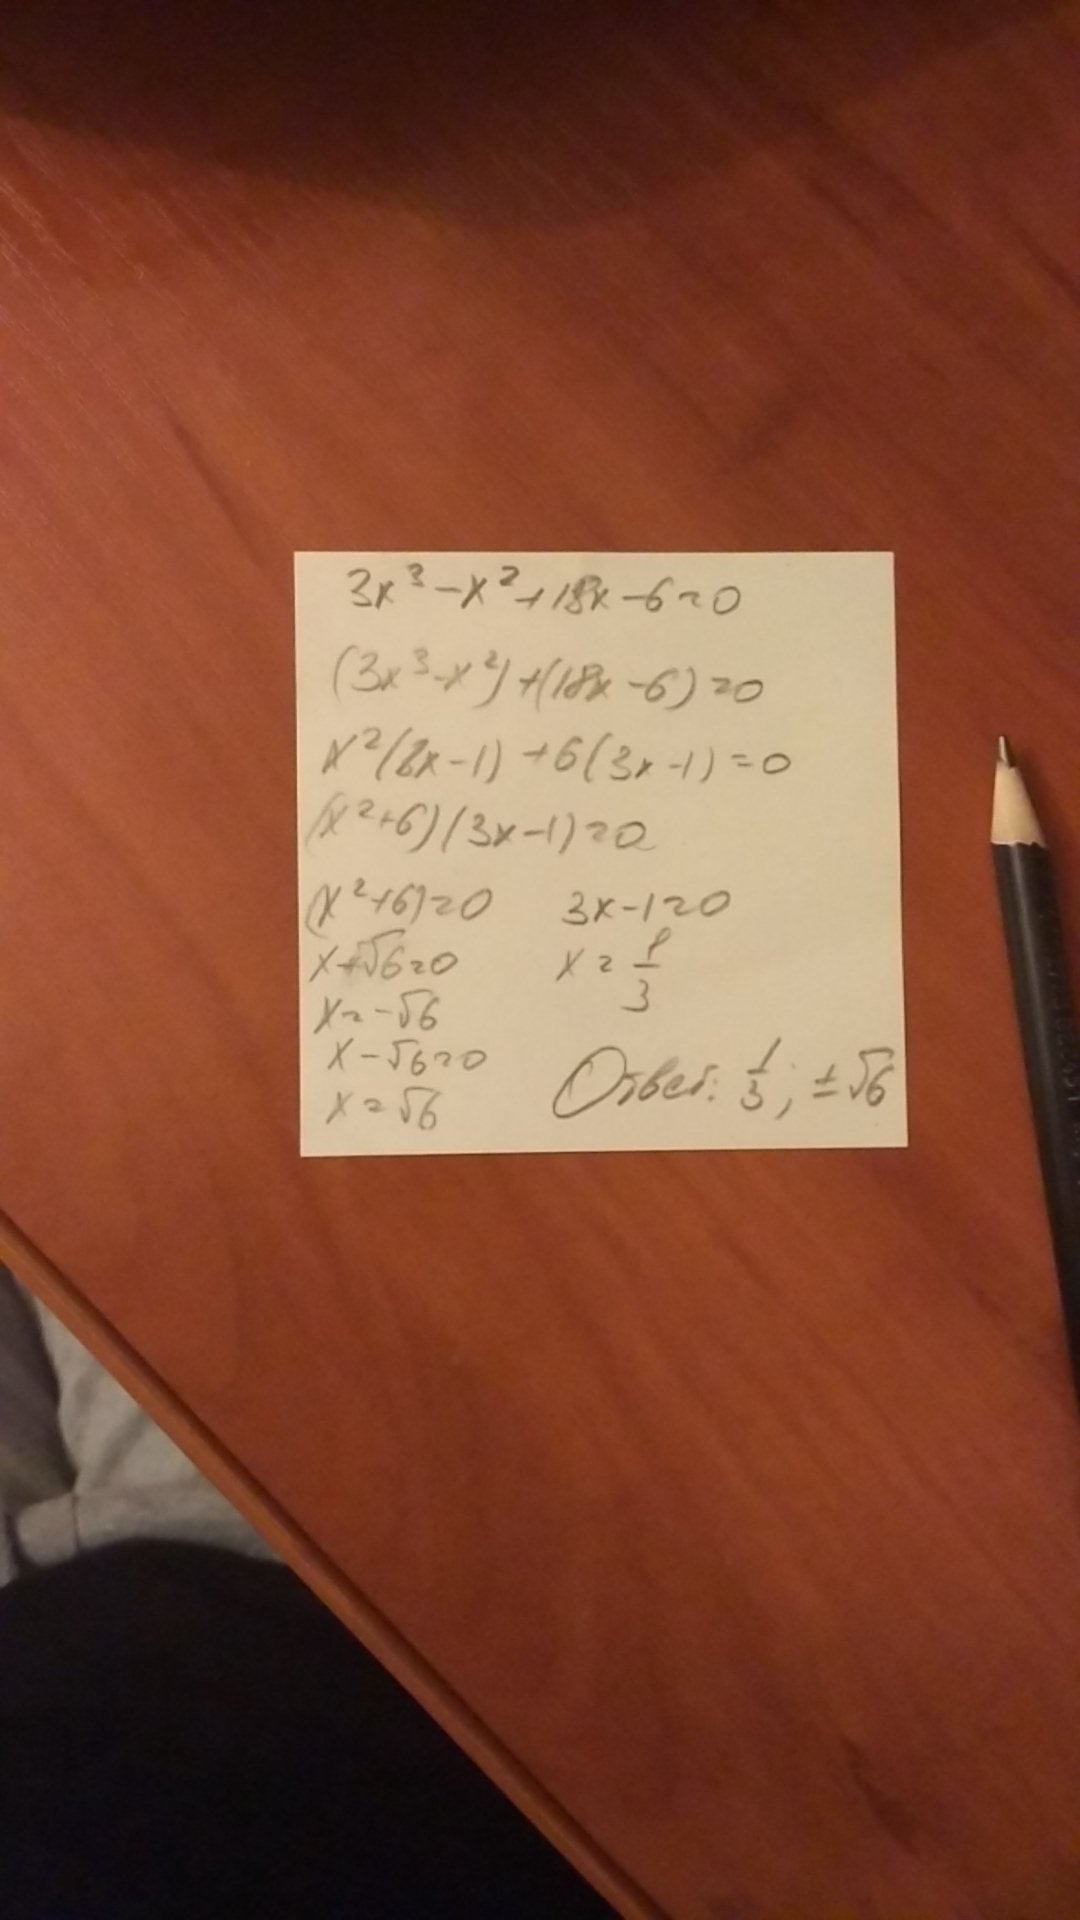 3x³-x²+18x-6=0
(3x³-x²)+(18x-6)=0
x²(3x-1)+6(3x-1)=0
(x²+6)(3x-1)=0
(x²+6)=0 3x-1=0
x+√6=0 x=1/3
x=-√6
x-√6=0
x=√6
Ответ: 1/3; ±√6